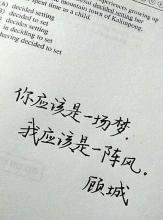 experiences growing up
mountain town of Kalimpong,
spent time as a child.
(A) decided setting
decided to set
decides setting
in deciding to set
having decided to set
你应该是一场梦，
我应该是一阵风。
顾城